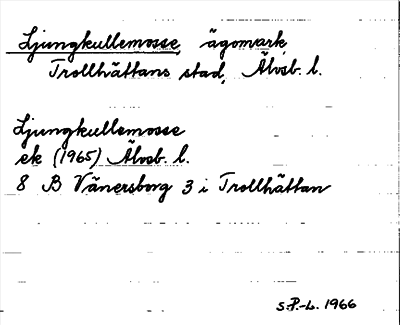 Ljungkullemosse, ägomark,
Trollhättans stad, Älvsb. l.
Ljungkullemosse
ek (1965) Älvsb. l.
8 B Vänersborg 3 i Trollhättan
S.P.-L. 1966